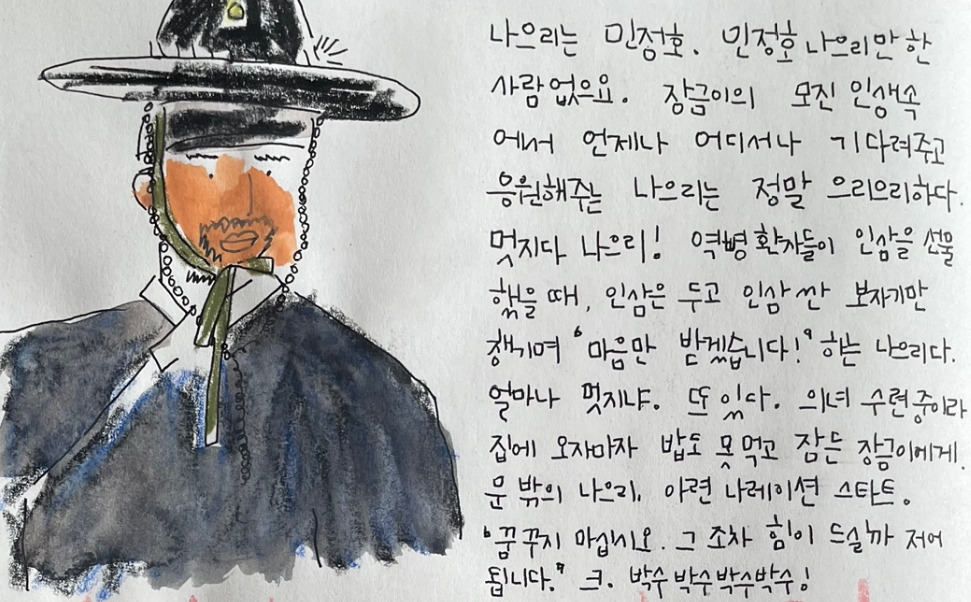 나으리는 민정호. 민정호 나으리만 한
사람 없으요. 장금이의 모진 인생속
에서 언제나 어디서나 기다려주고
응원해주는 나으리는 정말 으리으리하다.
멋지다 나으리! 역병 환자들이 인삼을 선물
했을 때, 인삼은 두고 인삼 싼 보자기만
챙기며 '마음만 받겠습니다!' 하는 나으리다.
얼마나 멋지냐. 또 있다. 의녀 수련중이라
집에 오자마자 밥도 못 먹고 잠든 장금이에게.
문 밖의 나으리. 아련 나레이션 스타트.
'꿈꾸지 마십시오. 그 조차 힘이 드실까 저어
됩니다.' 크. 박수 박수박수박수!